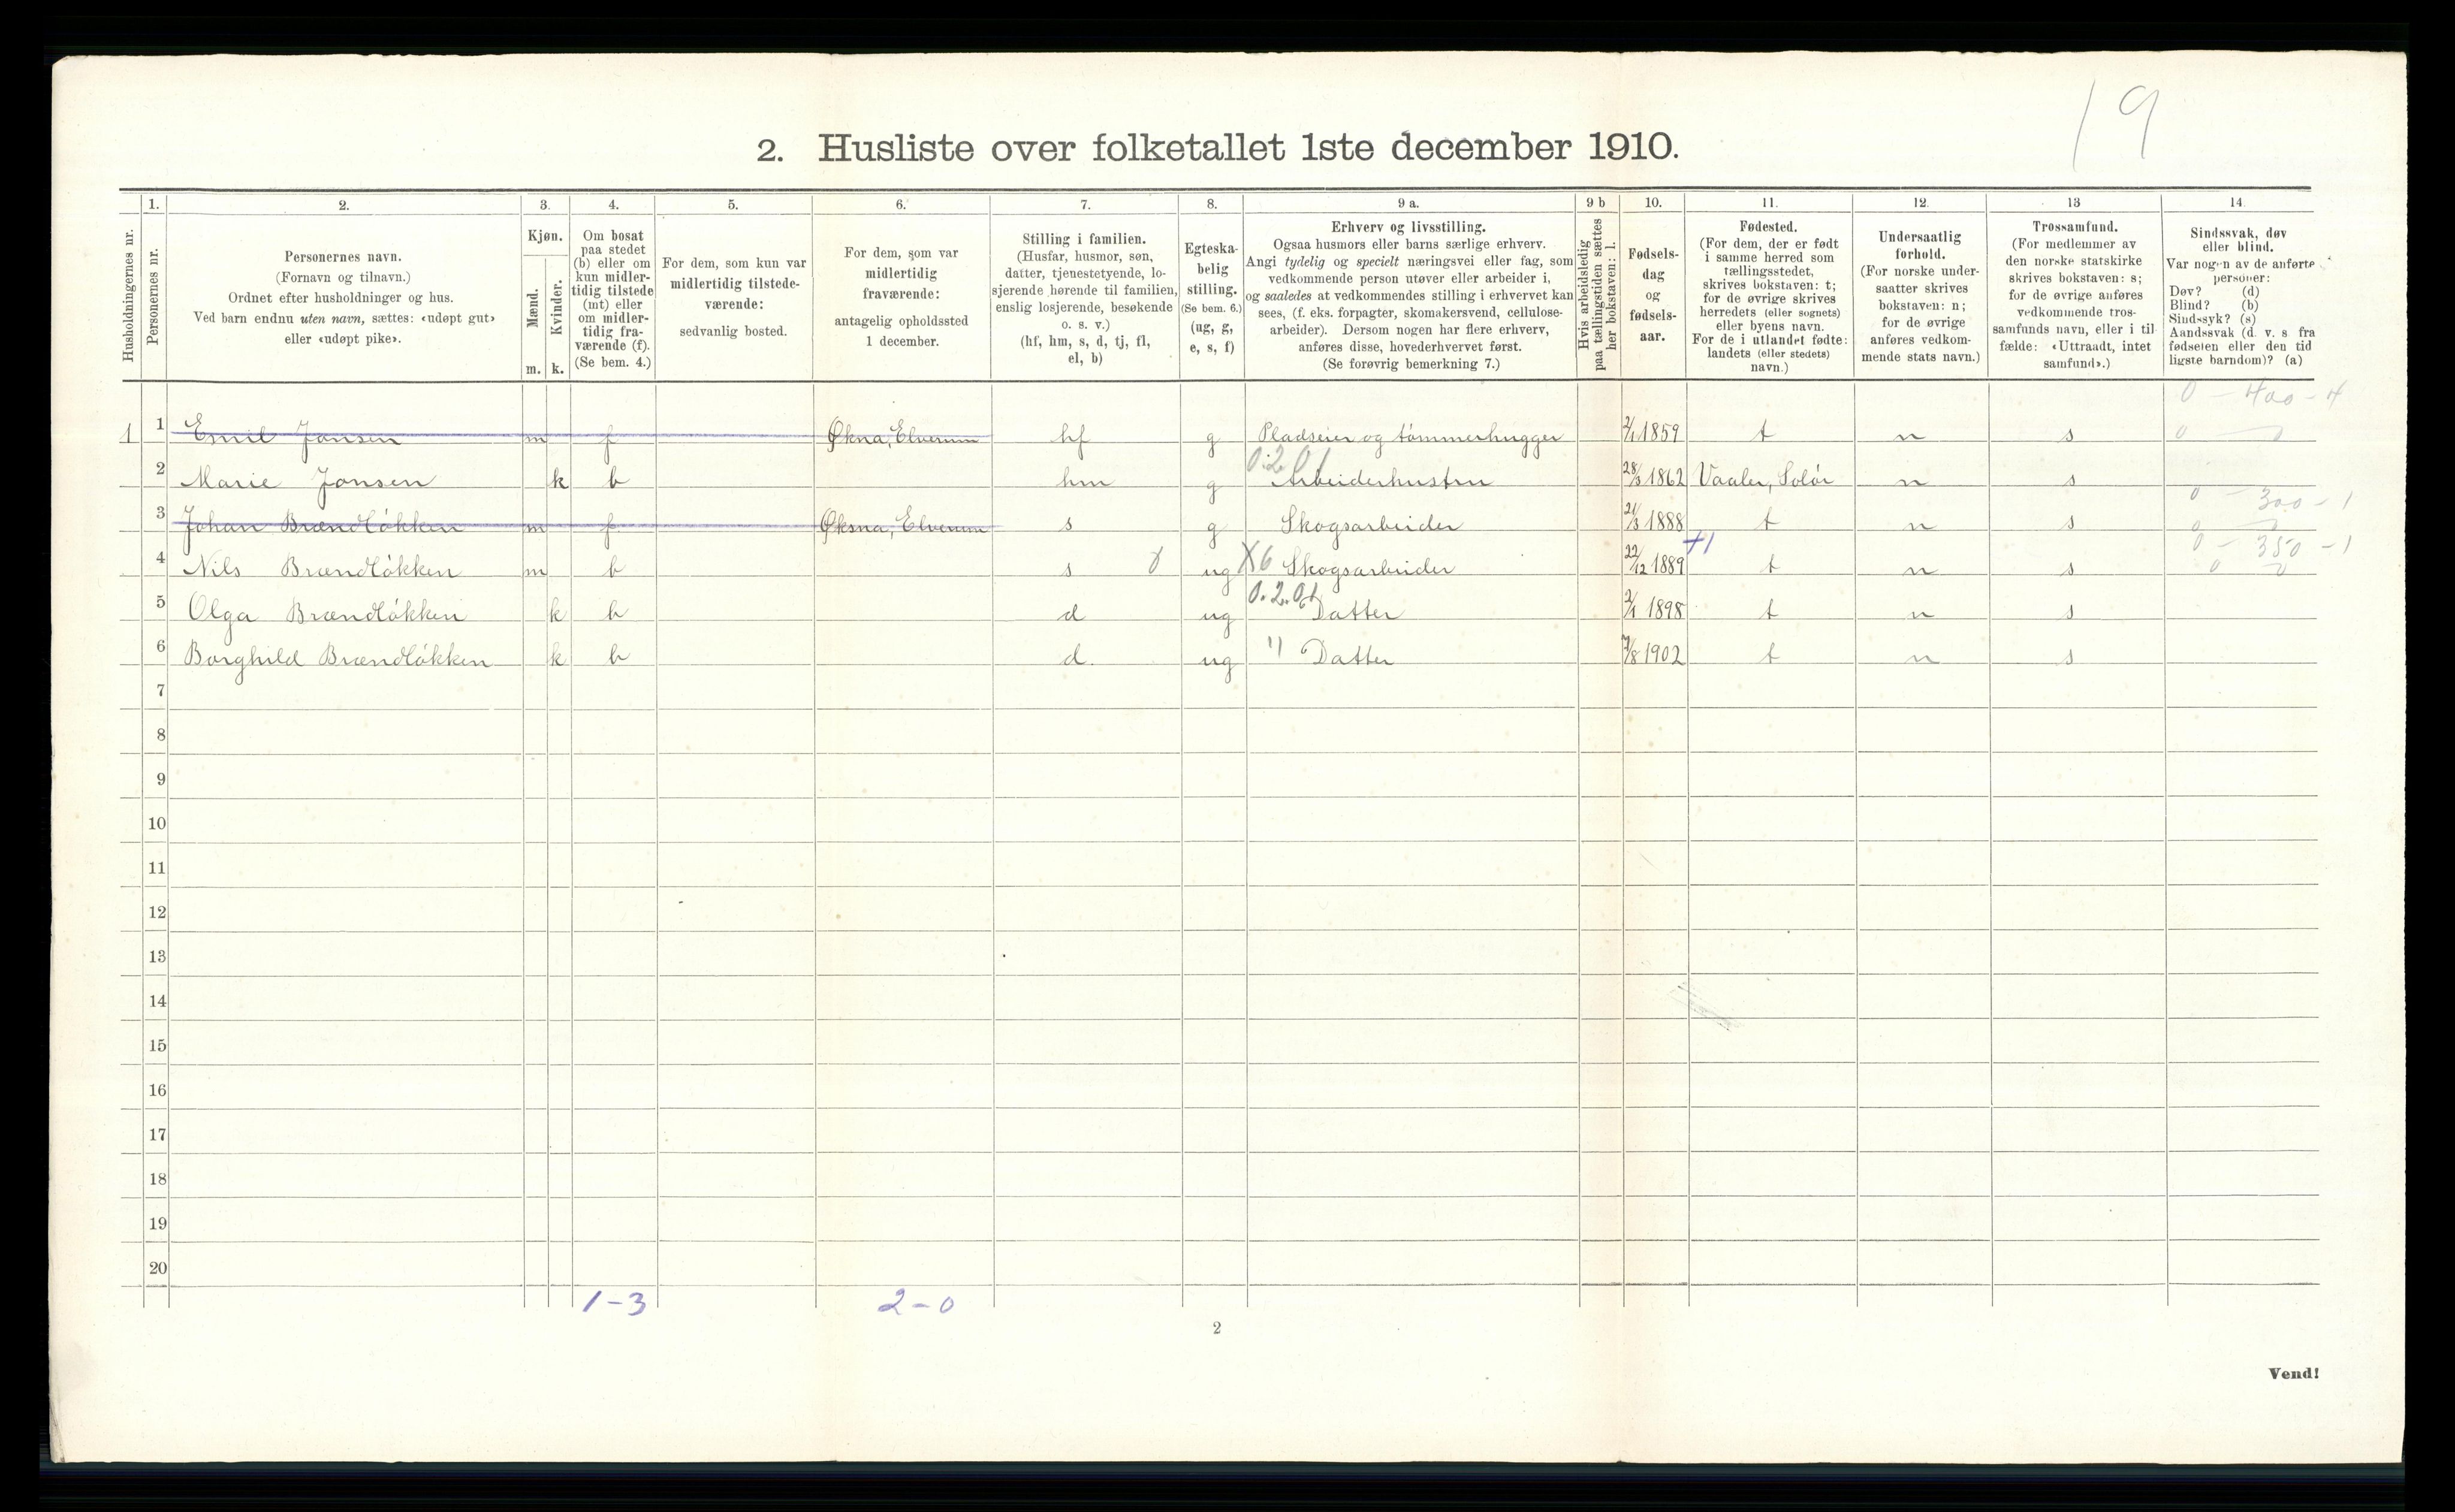 19
2. Husliste over folketallet 1ste december 1910.
Husholdningernes nr.
1.
Personernes nr.
2.
Personernes navn.
(Fornavn og tilnavn.)
Ordnet efter husholdninger og hus.
Ved barn endnu uten navn, sættes: «udøpt gut»
eller «udøpt pike».
3.
Kjøn.
Mænd.
Kvinder.
m. k.
4.
Om bosat
paa stedet
(b) eller om
kun midler-
tidig tilstede
(mt) eller
om midler-
tidig fra-
værende (f).
(Se bem. 4.)
5.
For dem, som kun var
midlertidig tilstede-
værende:
sedvanlig bosted.
6.
For dem, som var
midlertidig
fraværende:
antagelig opholdssted
1 december.
7.
Stilling i familien.
(Husfar, husmor, søn,
datter, tjenestetyende, lo-
sjerende hørende til familien,
enslig losjerende, besøkende
o. s. v.)
(hf, hm, s, d, tj, fl,
el, b)
8.
Egteska-
belig
stilling.
(Se bem. 6.)
(ug, g,
e, s, f)
9 a.
Erhverv og livsstilling.
Ogsaa husmors eller barns særlige erhverv.
Angi tydelig og specielt næringsvei eller fag, som
vedkommende person utøver eller arbeider i,
og saaledes at vedkommendes stilling i erhvervet kan
sees, (f. eks. forpagter, skomakersvend, cellulose-
arbeider). Dersom nogen har flere erhverv,
anføres disse, hovederhvervet først.
(Se forøvrig bemerkning 7.)
9 b
Hvis arbeidsledig
paa tællingstiden sættes
her bokstaven: l.
10.
Fødsels-
dag
og
fødsels-
aar.
11.
Fødested.
(For dem, der er født
i samme herred som
tællingsstedet,
skrives bokstaven: t;
for de øvrige skrives
herredets (eller sognets)
eller byens navn.
For de i utlandet fødte:
landets (eller stedets)
navn.)
12.
Undersaatlig
forhold.
(For norske under-
saatter skrives
bokstaven: n;
for de øvrige
anføres vedkom-
mende stats navn.)
13
Trossamfund.
(For medlemmer av
den norske statskirke
skrives bokstaven: s;
for de øvrige anføres
vedkommende tros-
samfunds navn, eller i til-
fælde: «Uttraadt, intet
samfund».)
14
Sindssvak, døv
eller blind.
Var nogen av de anførte
personer:
Døv? (d)
Blind? (b)
Sindssyk? (s)
Aandssvak (d. v. s. fra
fødselen eller den tid
ligste barndom)? (a)
0 - 400 - 4
1 1 Emil Jansen m f Økna, Elverum hf g Pladseier og tømmerhugger 2/1 1859 t n s 0 0
0.2.01
2 Marie Jansen k b hm g Arbeiderhustru 28/3 1862 Vaaler, Solør n s
0 - 300 - 1
3 Johan Brændløkken m f Øksna, Elverum s g Skogsarbeider 21/3 1888 t n s 0 0
+1 0 - 350 - 1
4 Nils Brændløkken m b s ug X6 Skogsarbeider 22/12 1889 t n s 0 0
0.2.01
5 Olga Brændløkken k b d ug Datter 2/1 1898 t n s
6 Borghild Brændløkken k b d. ug " Datter 7/8 1902 t n s
7
8
9
10
11
12
13
14
15
16
17
18
19
20
1-3 2-0
2
Vend!